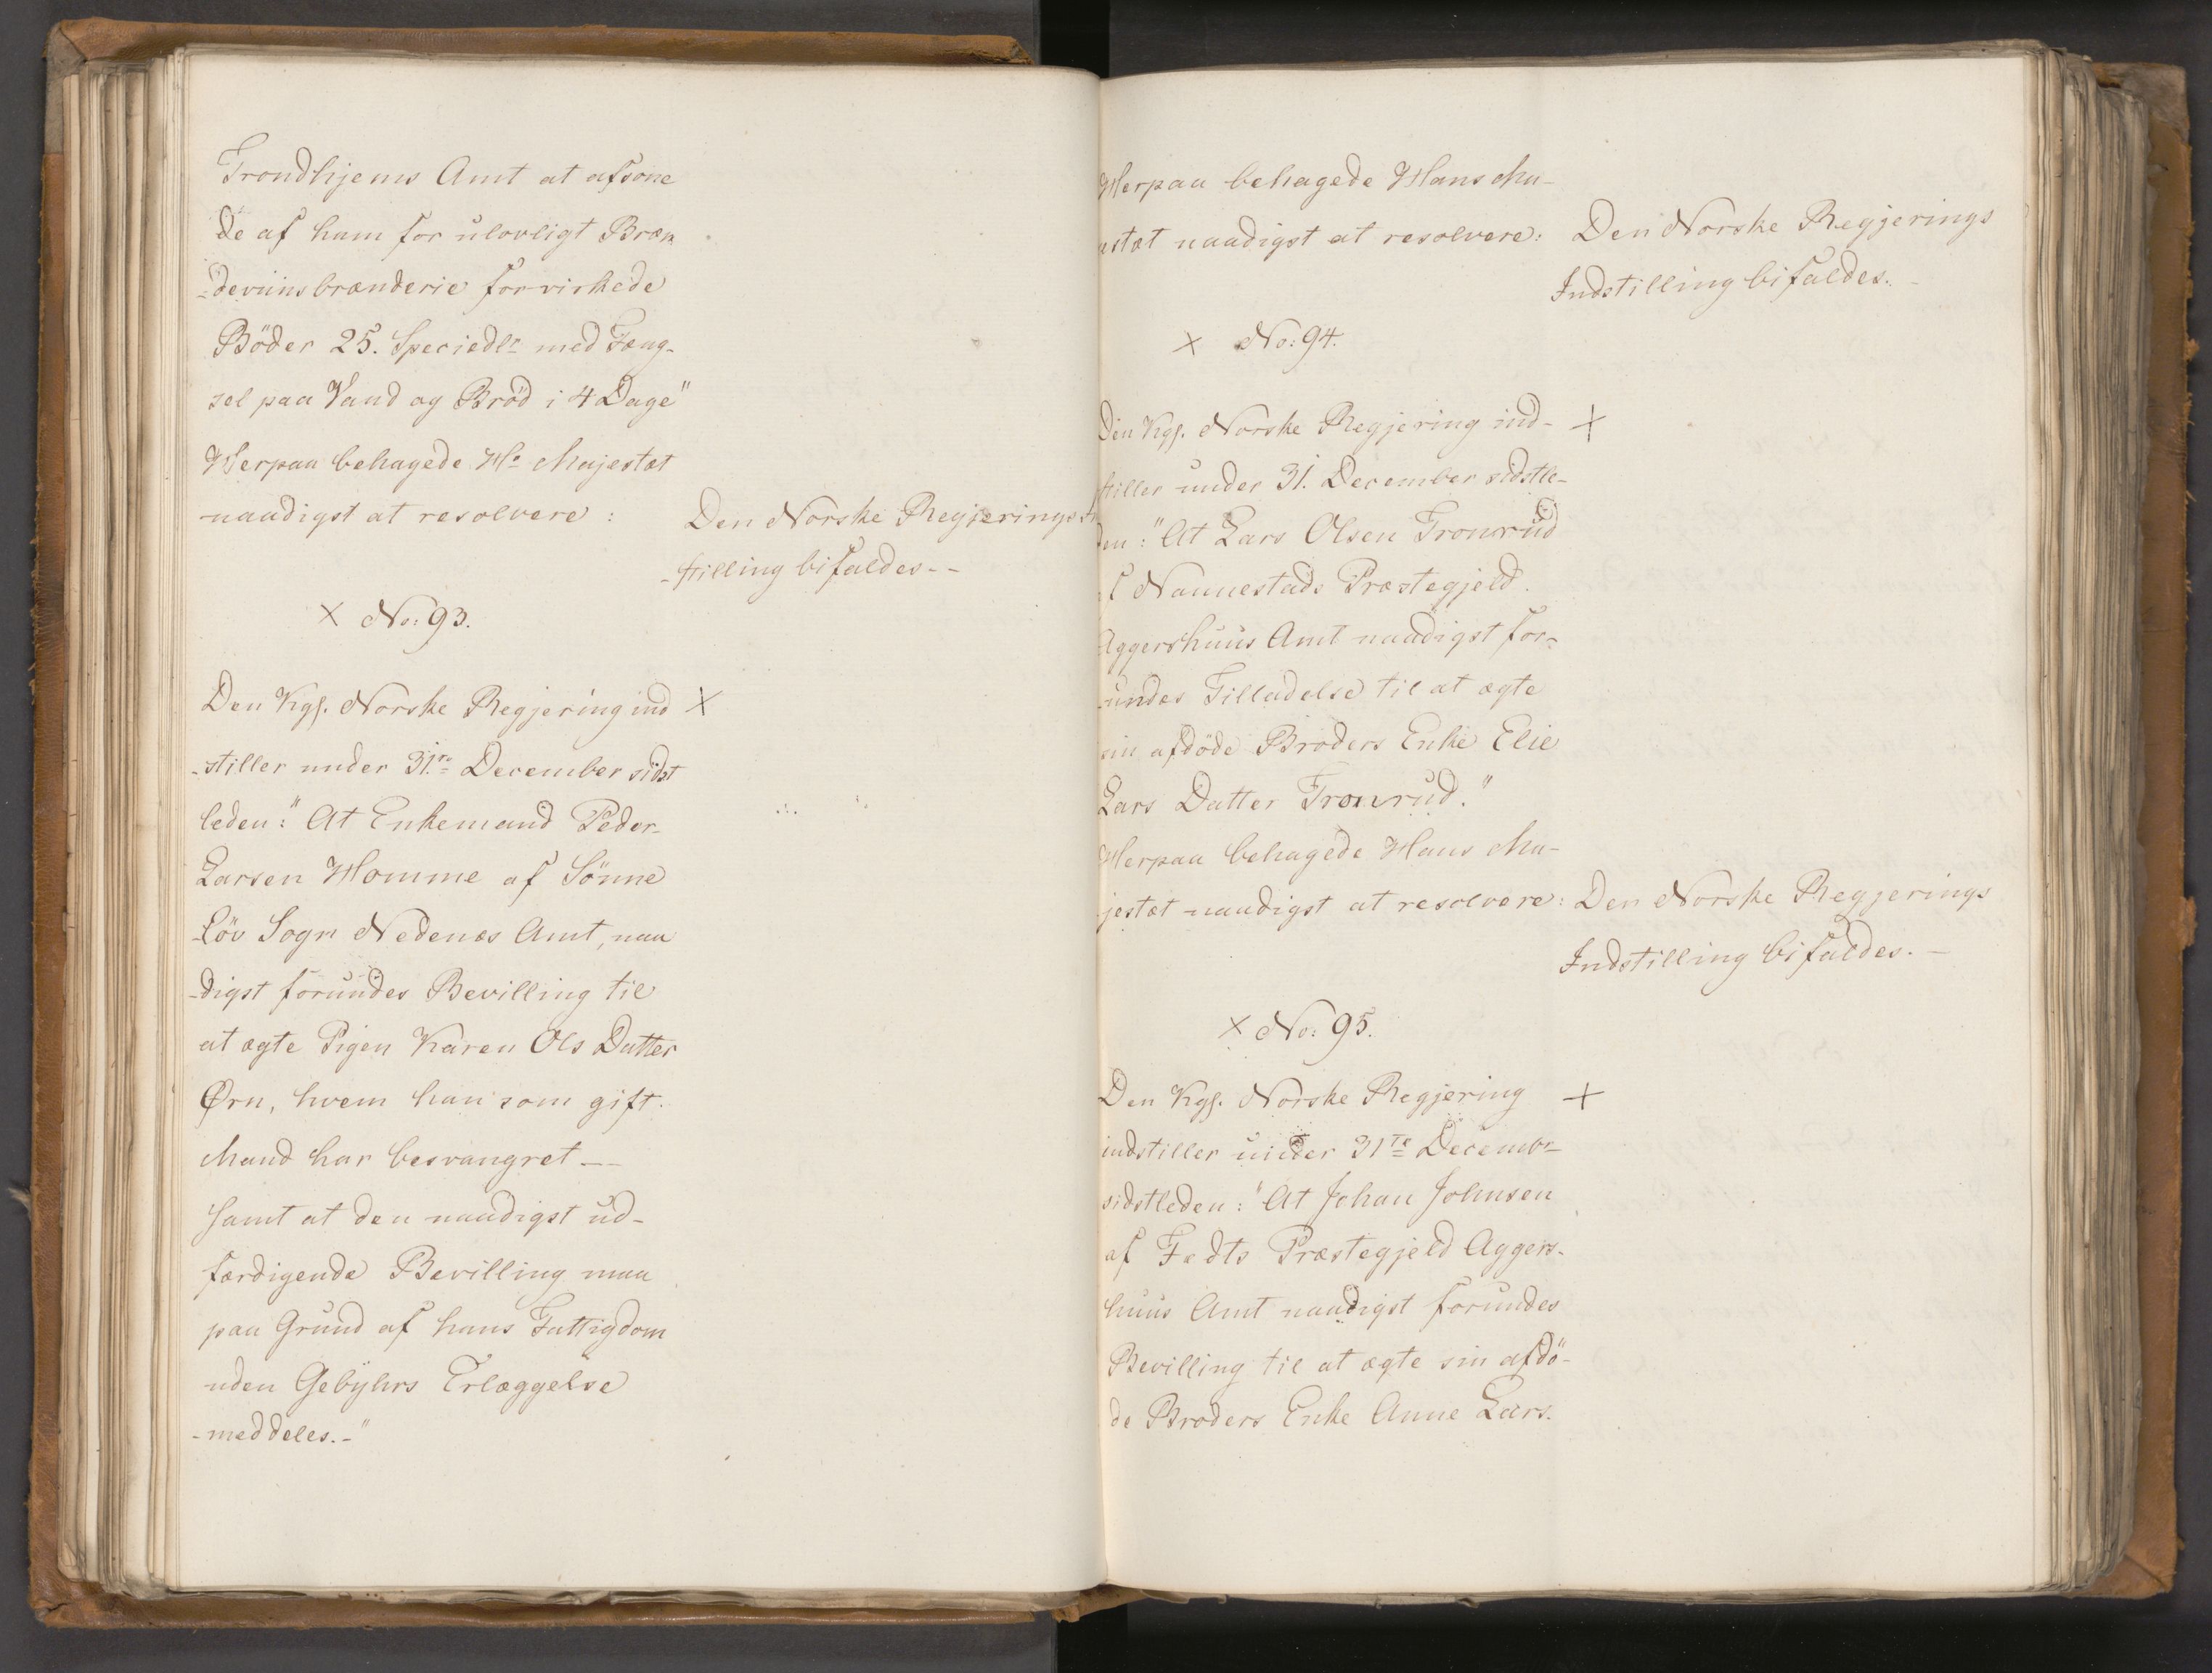 Trondhjems Amt at afsone
de af ham for ulovligt Bræn
-deviinsbrænderie forvirkede
Böder 25. Speciedlr med Fæng-
sel paa Vand og Bröd i 4 Dage"
Herpaa behagede Hs Majestæt
naadigst at resolvere :
Den Norske Regjerings
-stilling bifaldes--
× No: 93.
Den Kgl. Norske Regjering ind ×
-stiller under 31te December sidst
leden: "At Enkemand Peder
Larsen Homme af Sönne
-löv Sogn Nedenæs Amt, naa
-digst forundes Bevilling til
at ægte Pigen Karen Ols Datter
Ørn, hvem han som gift
Mand har besvangret --
samt at den naadigst ud-
færdigende Bevilling maa
paa Grund af hans Fattigdom
uden Gebyhrs Erlæggelse
-meddeles.-"
Herpaa behagede Hans Ma-
estæt naadigst at resolvere:
Den Norske Regjerings
Indstilling bifaldes. -
× No: 94.
Den Kgl. Norske Regjering ind- ×
stiller under 31. December sidstle-
den: "At Lars Olsen Tronrud
i Nannestads Præstegjeld
Aggershuus Amt naadigst for-
undes Tilladelse til at ægte
sin afdöde Broders Enke Elie
Lars Datter Tronrud."
Herpaa behagede Hans Ma-
jestæt naadigst at resolvere:
Den Norske Regjerings
Indstilling bifaldes. -
× No: 95.
Den Kgl. Norske Regjering ×
indstiller under 31te Decembr
sidstleden: "At Johan Johnsen
af Fedts Præstegjeld Aggers-
huus Amt naadigst forundes
Bevilling til at ægte sin afdö-
de Broders Enke Anne Lars.